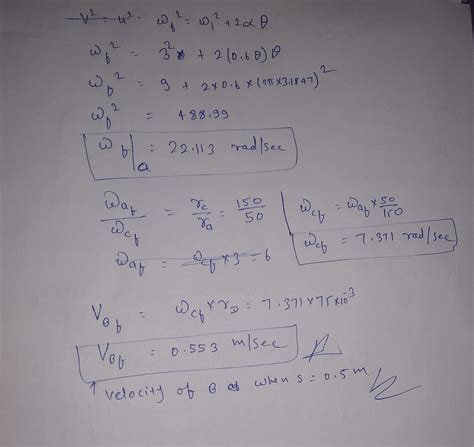 V² = u² · ω_f² = ω_i² + 2αθ
ω_f² = 3² + 2(0.6θ)θ
ω_f² = 9 + 2×0.6×(2π×3.1847)²
ω_f² = 488.99
ω_f|_a = 22.113 rad/sec
ω_af/ω_cf = r_c/r_a = 150/50
ω_cf = ω_af × 50/150
ω_af = ω_cf × 3 = 6
ω_cf = 7.371 rad/sec
V_Bf = ω_cf × r_D = 7.371×75×10⁻³
V_Bf = 0.553 m/sec
↑ velocity of B when s = 0.5m